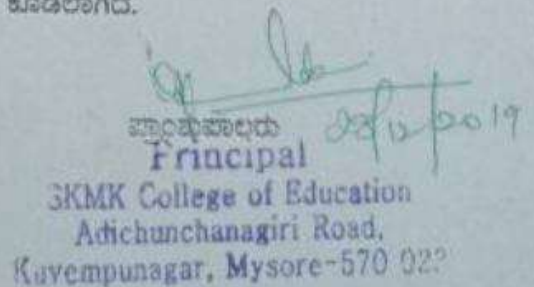 ಕೂಡಲಾಗಿದೆ.
ಪ್ರಾಂಶುಪಾಲರು 23/12/2019
Principal
SKMK College of Education
Adichunchanagiri Road,
Kuvempunagar, Mysore-570 023